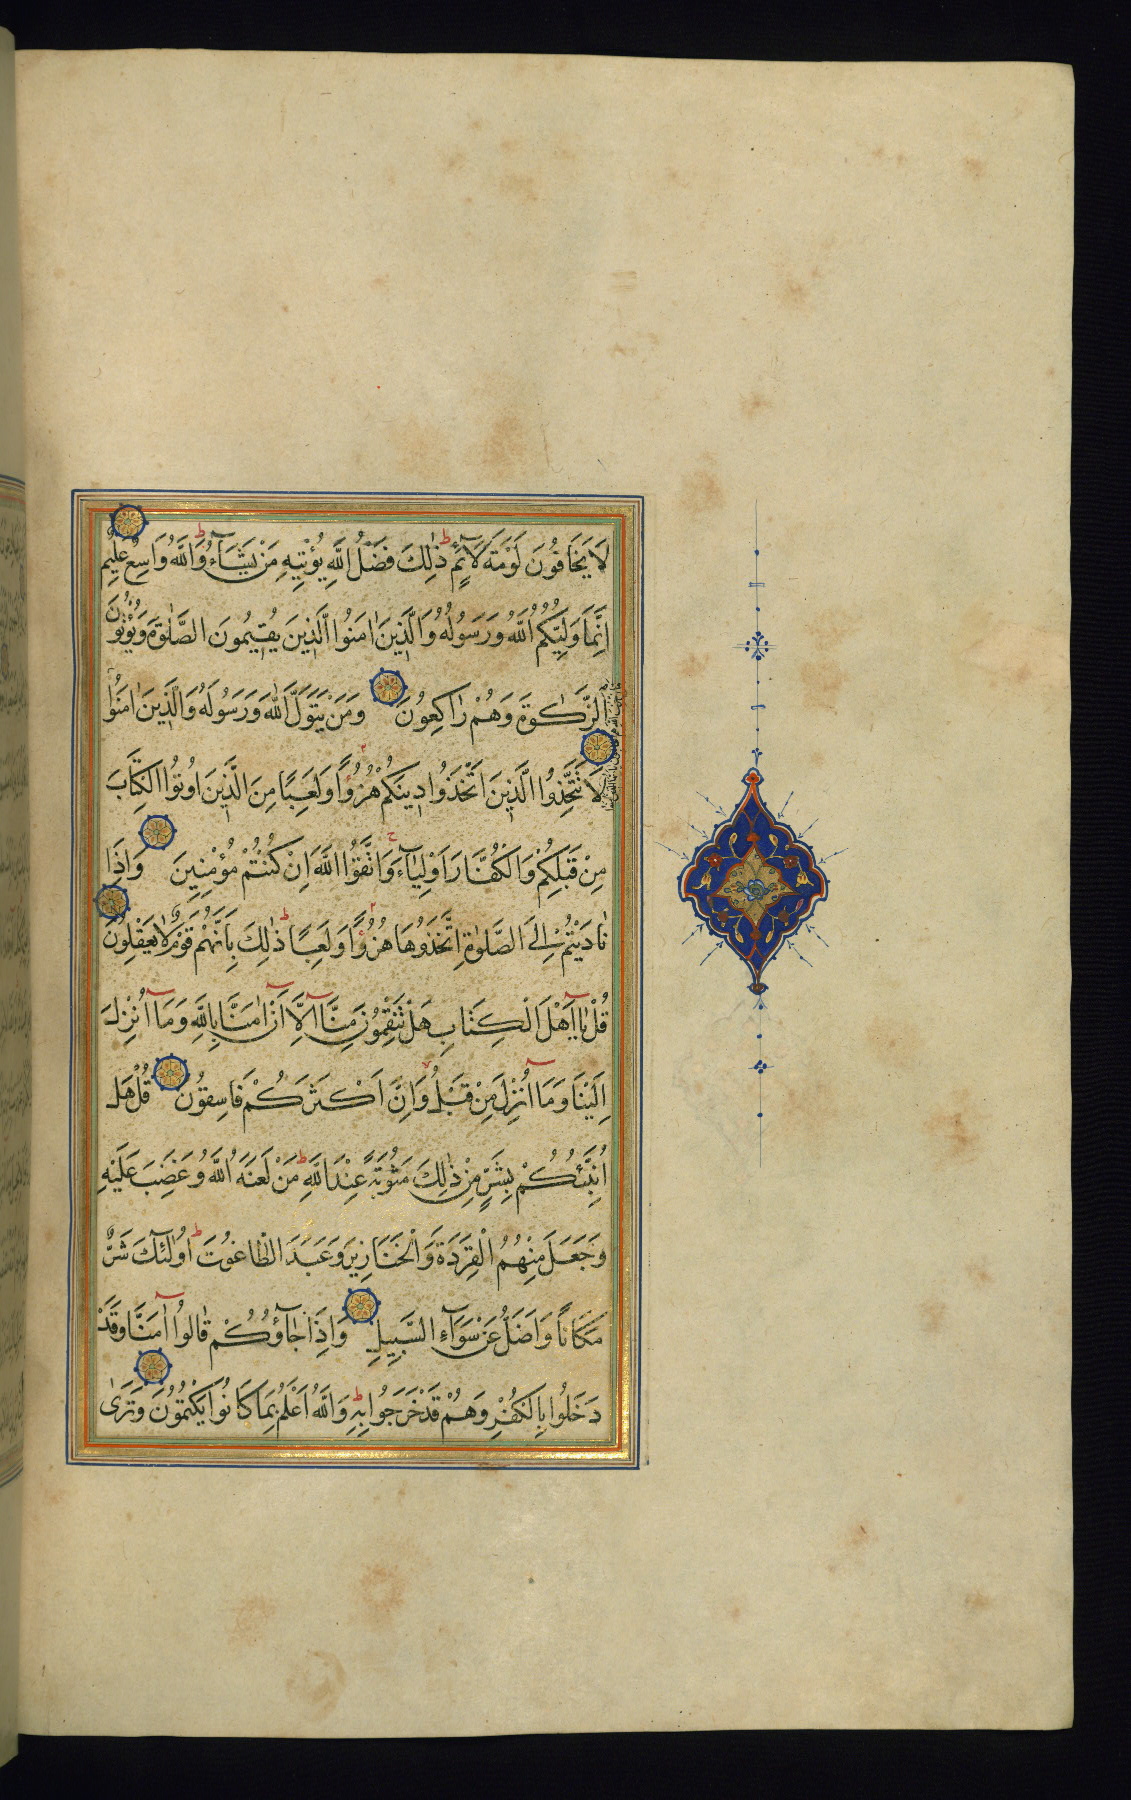 لَا يَخَافُونَ لَوْمَةَ لَآئِمٍ ذٰلِكَ فَضْلُ اللّٰهِ يُؤْتِيهِ مَنْ يَشَآءُ وَاللّٰهُ وَاسِعٌ عَلِيمٌ
اِنَّمَا وَلِيُّكُمُ اللّٰهُ وَرَسُولُهُ وَالَّذِينَ اٰمَنُوا الَّذِينَ يُقِيمُونَ الصَّلٰوةَ وَيُؤْتُونَ
الزَّكٰوةَ وَهُمْ رَاكِعُونَ وَمَنْ يَتَوَلَّ اللّٰهَ وَرَسُولَهُ وَالَّذِينَ اٰمَنُوا
لَا تَتَّخِذُوا الَّذِينَ اتَّخَذُوا دِينَكُمْ هُزُؤًا وَلَعِبًا مِنَ الَّذِينَ اُوتُوا الْكِتَابَ
مِنْ قَبْلِكُمْ وَالْكُفَّارَ اَوْلِيَآءَ وَاتَّقُوا اللّٰهَ اِنْ كُنْتُمْ مُؤْمِنِينَ وَاِذَا
نَادَيْتُمْ اِلَى الصَّلٰوةِ اتَّخَذُوهَا هُزُؤًا وَلَعِبًا ذٰلِكَ بِاَنَّهُمْ قَوْمٌ لَا يَعْقِلُونَ
قُلْ يَآ اَهْلَ الْكِتَابِ هَلْ تَنْقِمُونَ مِنَّآ اِلَّآ اَنْ اٰمَنَّا بِاللّٰهِ وَمَآ اُنْزِلَ
اِلَيْنَا وَمَآ اُنْزِلَ مِنْ قَبْلُ وَاَنَّ اَكْثَرَكُمْ فَاسِقُونَ قُلْ هَلْ
اُنَبِّئُكُمْ بِشَرٍّ مِنْ ذٰلِكَ مَثُوبَةً عِنْدَ اللّٰهِ مَنْ لَعَنَهُ اللّٰهُ وَغَضِبَ عَلَيْهِ
وَجَعَلَ مِنْهُمُ الْقِرَدَةَ وَالْخَنَازِيرَ وَعَبَدَ الطَّاغُوتَ اُولٰٓئِكَ شَرٌّ
مَكَانًا وَاَضَلُّ عَنْ سَوَآءِ السَّبِيلِ وَاِذَا جَآؤُكُمْ قَالُوٓا اٰمَنَّا وَقَدْ
دَخَلُوا بِالْكُفْرِ وَهُمْ قَدْ خَرَجُوا بِهِ وَاللّٰهُ اَعْلَمُ بِمَا كَانُوا يَكْتُمُونَ وَتَرٰى